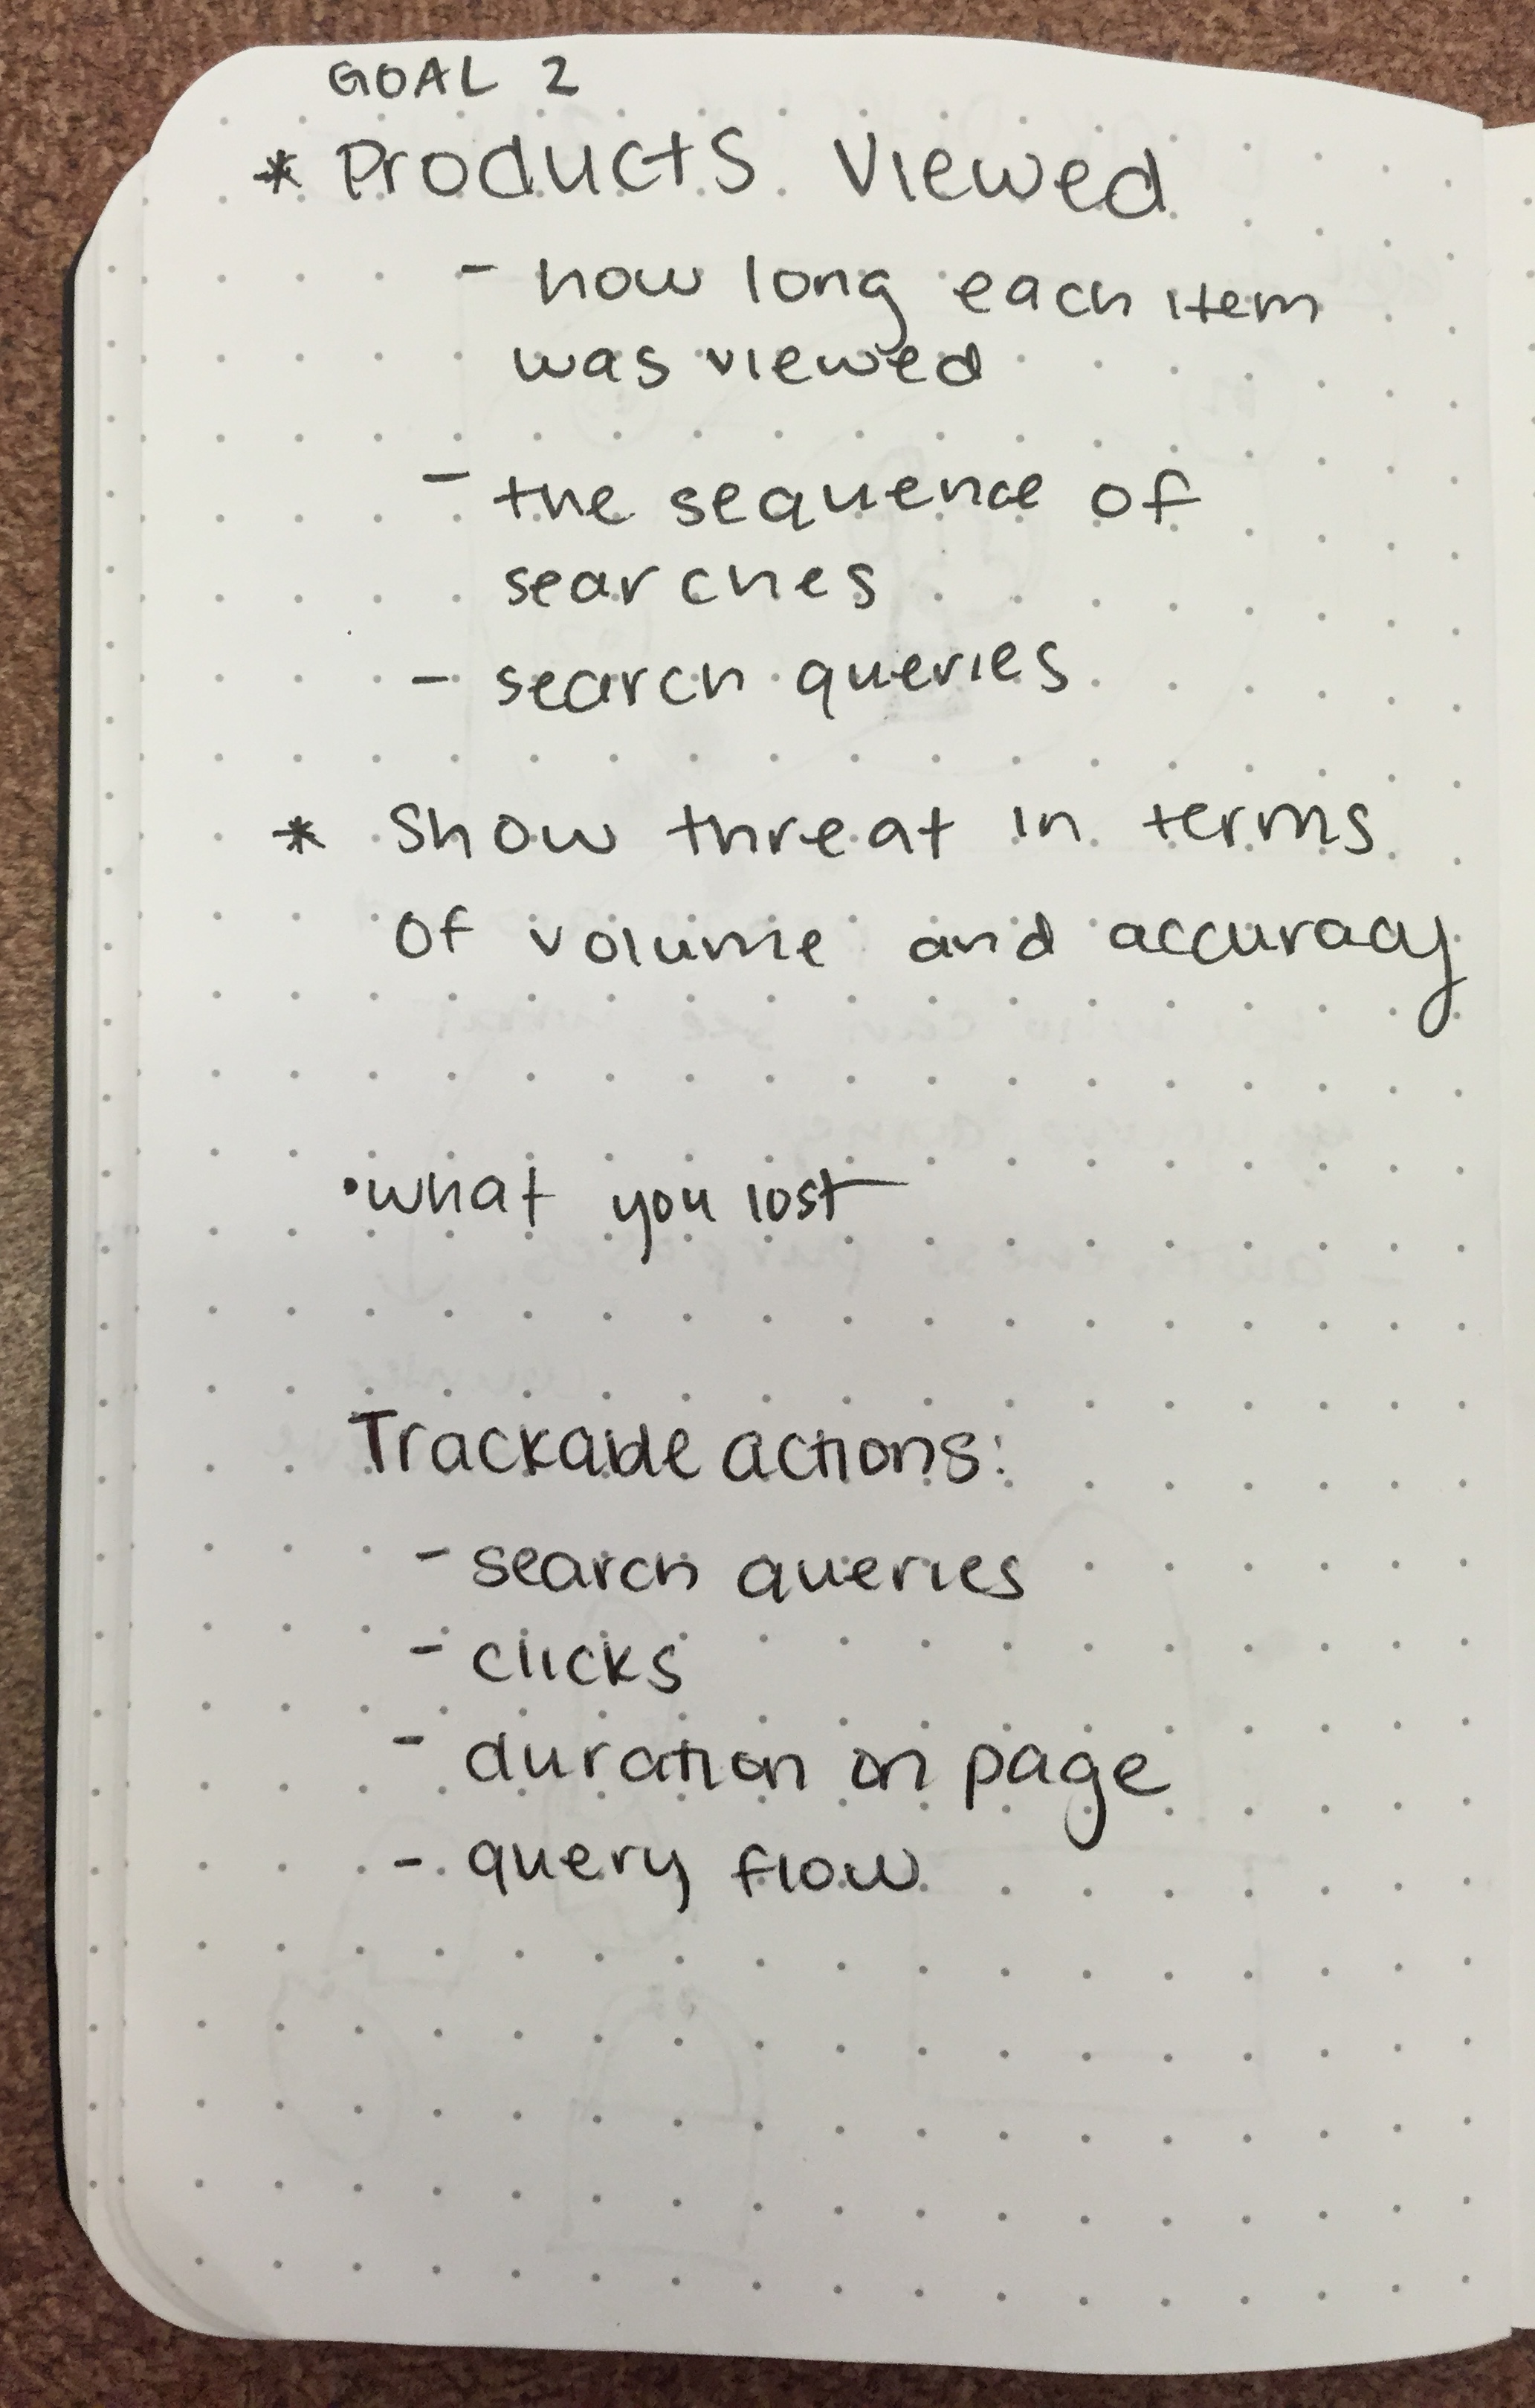 GOAL 2
* Products Viewed
- how long each item
was viewed
- the sequence of
searches
- search queries
* Show threat in terms
of volume and accuracy
•what you lost
Trackable actions:
- search queries
- clicks
- duration on page
- query flow